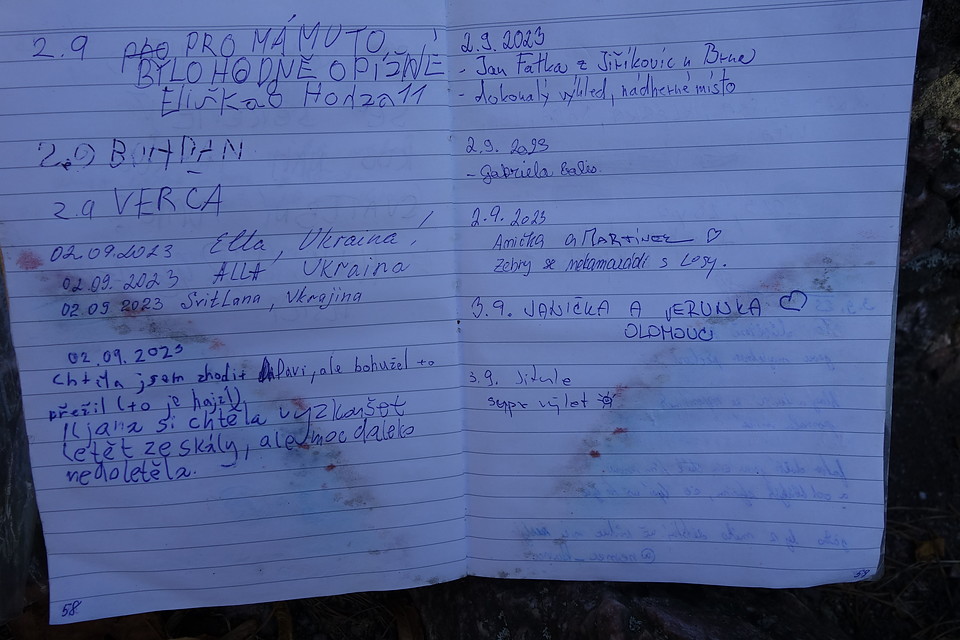 2.9 PRO MÁMU TO
BYLO HODNĚ OPIŽNĚ
Eliška 8 Honza 11
2.9 BOHDAN
2.9 VERČA
02.09.2023 Ella, Ukraina,
02.09.2023 ALLA Ukraina
02.09 2023 Svitlana, Ukrajina
02.09.2023
chtěla jsem zhodit Pavi, ale bohužel to
přežil (to je hajzl)
Iljana si chtěla vyzkoušet
letět ze skály, ale moc daleko
nedoletěla.
58
2.9.2023
- Jan Fatka z Jiříkovic u Brna
- dokonalý výhled, nádherné místo
2.9. 2023
- Gabriela
2.9. 2023
Anička a MARTÍNEK ♡
Zebry se nekamarádí s Losy.
3.9. JANIČKA A VERUNKA ♡
OLOMOUC
3.9.
supr výlet
58